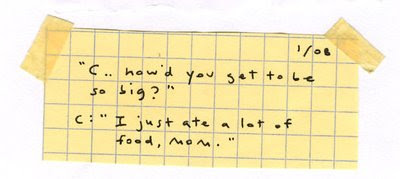 1/08
"C.. how'd you get to be
so big?"
C: "I just ate a lot of
food, mom."